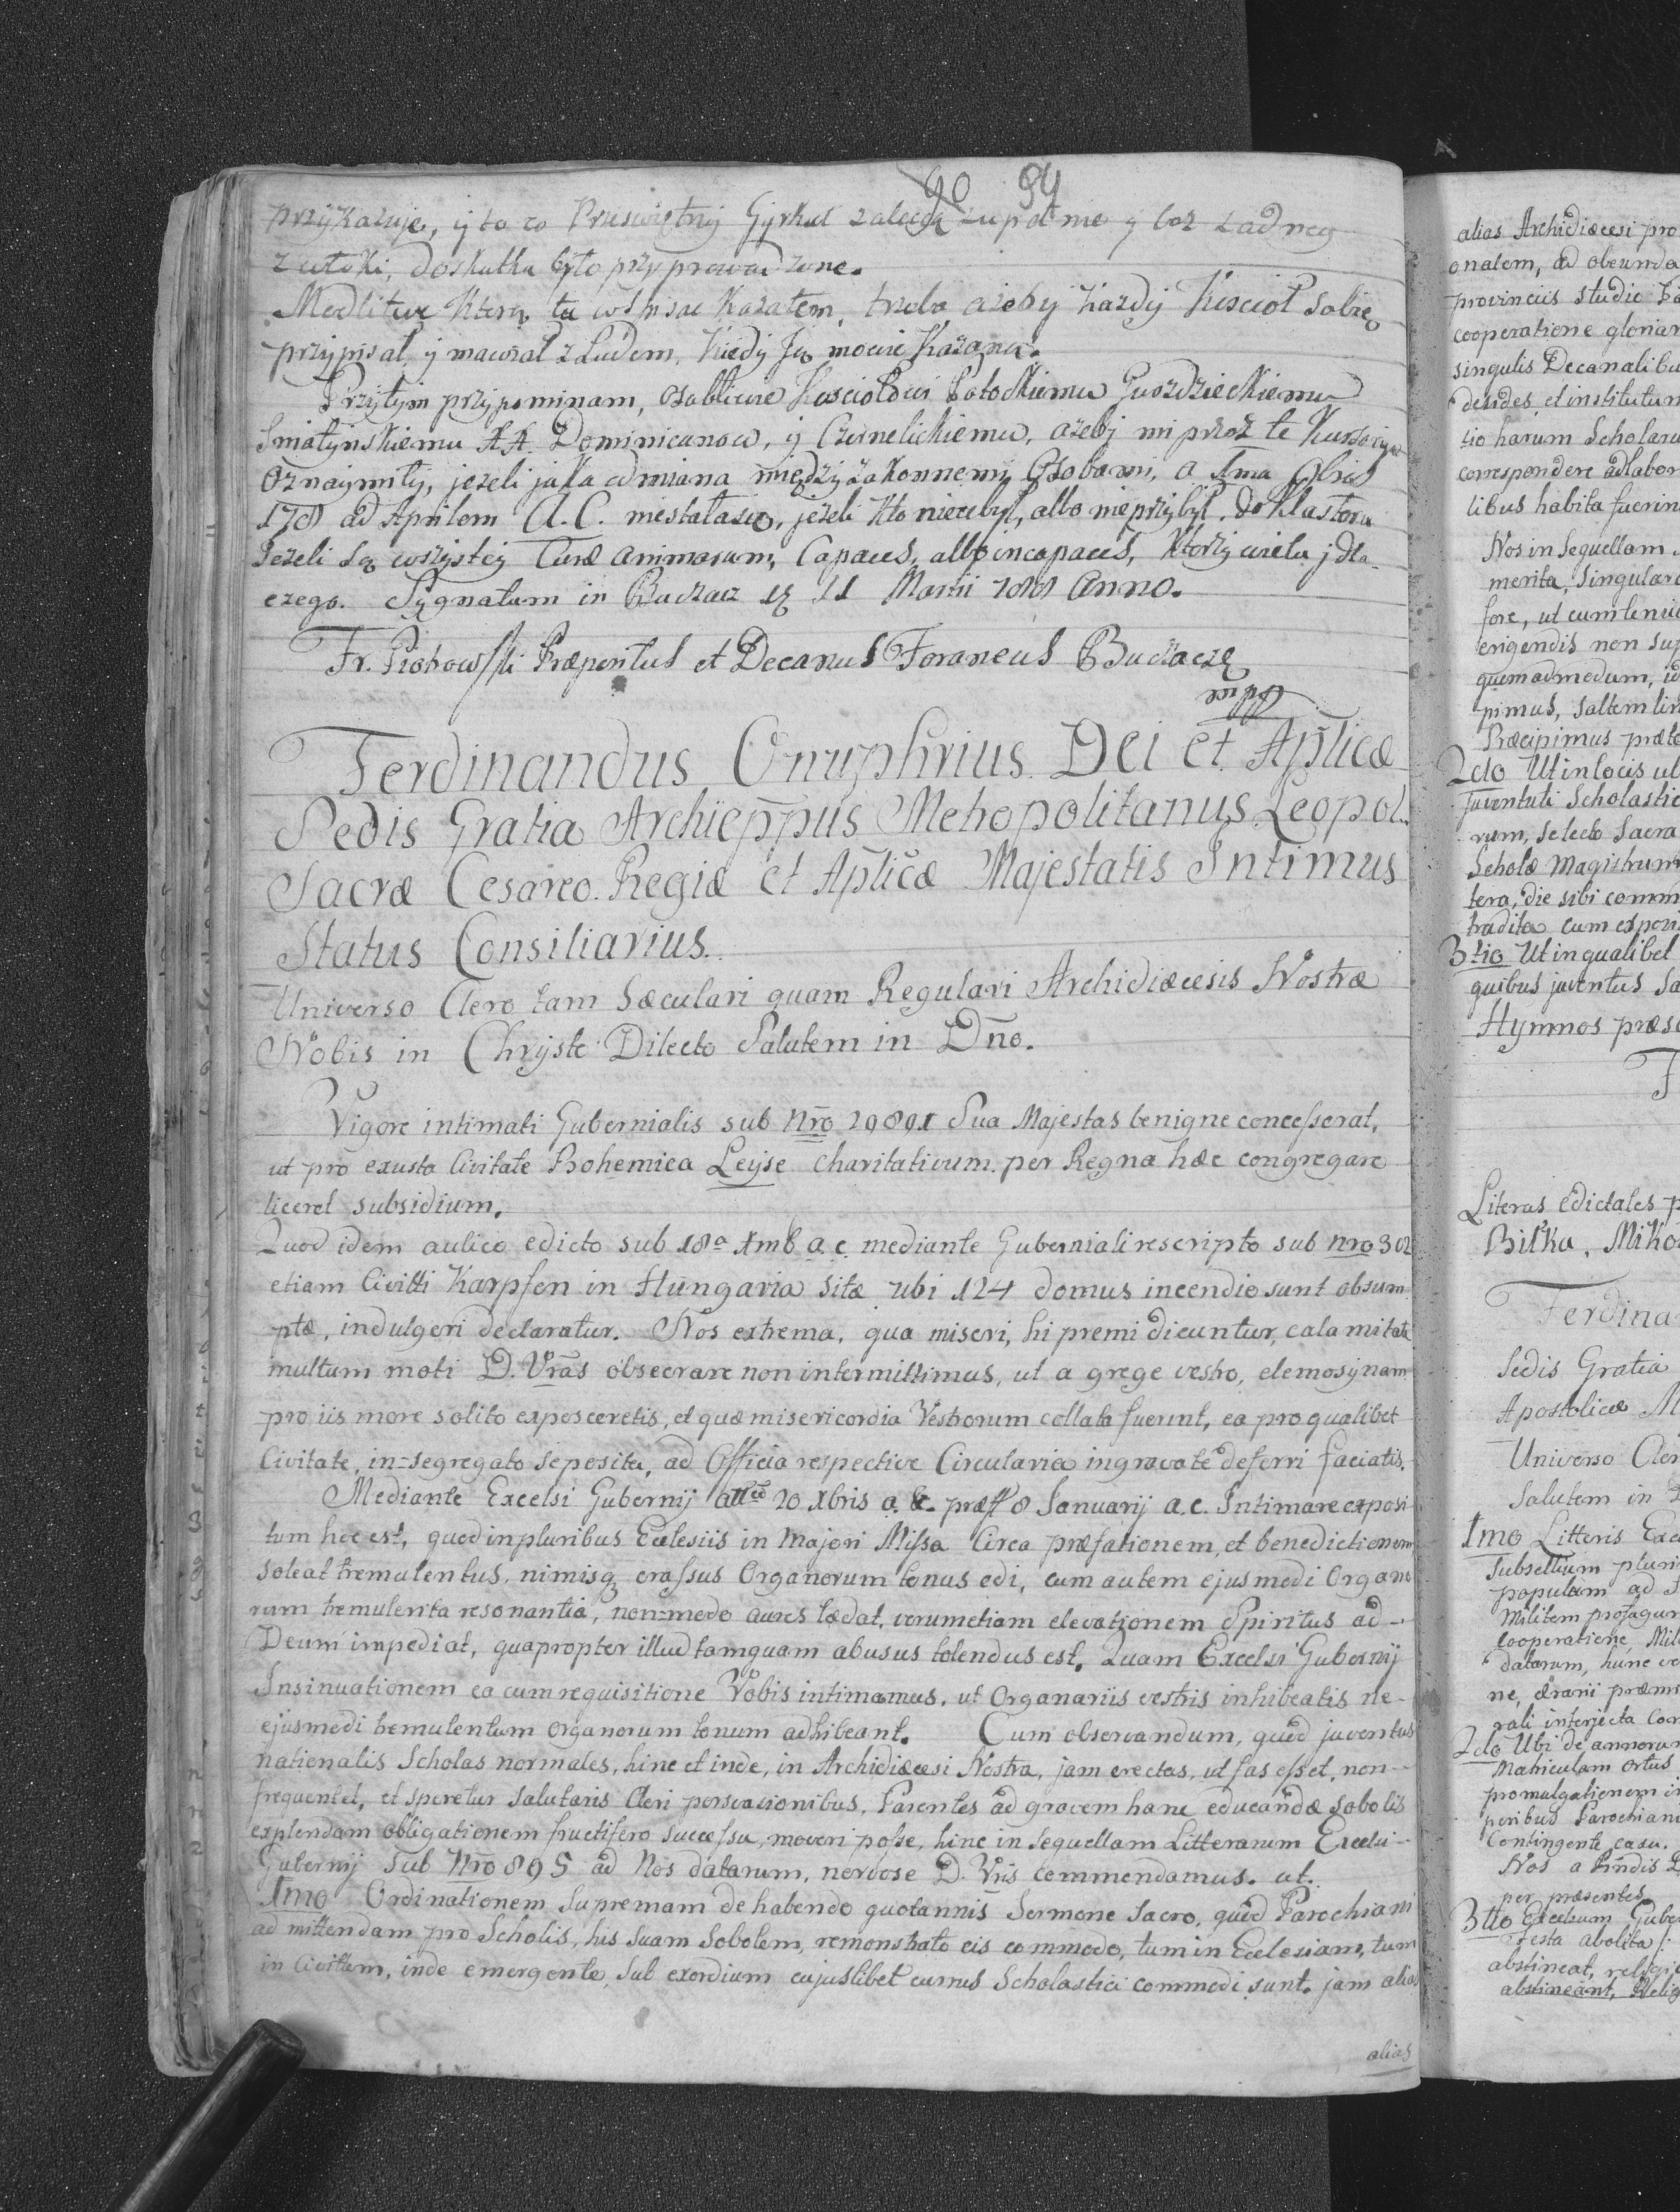 90 94
przykazuje, y to co Przeswiętny Cyrkuł zalecą zupełnie y bez zadney
zwłoki, doskutku było przyprowadzone.
Modlitwe Którą tu wpisac Kazałem, trzeba azeby Kazdy Koscioł sobie
przypisał, y mawiał z Ludem, Kiedy Ją mowic Kazano.
Przytym przypominam, osobliwie Kosciołowi Potockiemu Gwozdzieckiemu
Sniatynskiemu XX Dominicanow, y Czernelickiemu, azeby mi przez te Kursoryą
Oznaymiły, jezeli jaka odmiana między zakonnemi Osobami, a 1ma 9bris
178 ad Aprilem A. C. niestałasię, jezeli Kto nieubył, albo nieprzybył, do Klasztora
Jezeli są wszystcy Curæ animarum, Capaces, albo incapaces, Ktorzy wiela y dla
czego. Sygnatum in Buczacz 11 Martii Anno.
Fr. Piotrowski Præpositus et Decanus Foraneus Buczacz
Ferdinandus Onuphrius Dei et Aplicæ
Sedis Gratia Archieppus Metropolitanus Leopol.
Sacræ Cesareo Regiæ et Aplicæ Majestatis Intimus
Status Consiliarius.
Universo Clero tam Sæculari quam Regulari Archidiæcesis Nostræ
Nobis in Chryste Dilecto Salutem in Dno.
Vigore intimati Gubernialis sub Nro 29891 Sua Majestas benigne concesserat,
ut pro exusta Civitate Bohemica Leyse charitativum per Regna hæc congregare
liceret subsidium.
Quod idem aulico edicto sub 18a Xmb a. c. mediante Guberniali rescripto sub nro 302
etiam Civitti Karpfen in Hungaria sitæ ubi 124 domus incendio sunt absum
ptæ, indulgeri declaratur. Nos extrema, qua miseri, hi premi dicuntur, calamitate
multum moti D. Vras obsecrare non intermittimus, ut a grege vestro, elemosynam
pro iis more solito exposceretis, et quæ misericordia Vestrorum collata fuerint, ea pro qualibet
Civitate, in-segregato seposita, ad Officia respective Circularia ingravate deferri faciatis.
Mediante Excelsi Gubernij 20 Xbris a. præs 8 Januarij a.c. Intimare exposi
tum hoc est, quod in pluribus Ecclesiis in Majori Missa circa præfationem, et benedictionem
soleat tremulentus, nimisq crassus Organorum tonus edi, cum autem ejusmodi Organo
rum tremulenta resonantia, non=modo aures lædat, verumetiam elevationem Spiritus ad-
Deum impediat, quapropter illud tamquam abusus tolendus est. Quam Excelsi Gubernij
Insinuationem ea cum requisitione Vobis intimamus, ut Organariis vestris inhibeatis ne-
ejusmodi tremulentum Organorum tonum adhibeant. Cum observandum, quod juventus
nationalis Scholas normales, hinc et inde, in Archidiæcesi Nostra, jam erectas, ut fas esset, non-
frequentet, et speretur salutaris Cleri persvasionibus, Parentes ad gravem hanc educandæ sobolis
explendam obligationem fructifero successu, moveri posse, hinc in sequellam Litterarum Excelsi-
Gubernij sub Nro 895 ad Nos datarum, nervose D. Vris commendamus. ut.
1mo Ordinationem Supremam de habendo quotannis Sermone Sacro, quod Parochiani
ad mittendam pro Scholis, his suam Sobolem, remonstrato eis commodo, tum in Ecclesiam, tum
in Civittem, inde emergente, sub exordium cujuslibet cursus Scholastici commodi sunt. jam alias
alias
alias Archidiæcesi pro
onatem, ad obeunda
provinciis studio
cooperatione glorian
singulis Decanalibu
desides, et institutum
tio harum Scholaru
correspondere adlabor
libus habita fuerin
Nos in Sequellam
merita, singulare
fore, ut cum
erigendis non sup
quemadmodum, id
pimus, saltem lin
Præcipimus præte
2do Ut in locis ul
juventuti Scholastic
rum, selecto Sacra
Scholæ Magistrum
tera, die sibi comm
tradita cum experi
3tio Ut in qualibet
quibus juventus Sa
Hymnos præsc
F
Literas edictales p
Bilka, Miko
Ferdina
Sedis Gratia
Apostolicæ M
Universo Cler
Salutem in D
1mo Litteris Exce
Subsellium pluri
populum ad
Militem profugum
Cooperatione, Mil
datarum, hunc ve
ne, ærarii præmi
rali interjecta Cor
2do Ubi de annorum
Matriculam ortus
promulgationem in
peribus Parochiani
Contingente casu.
Nos a
per præsentes
3tio Excelsum Guber
Festa abolita
abstineat, religi
abstineant, Relig